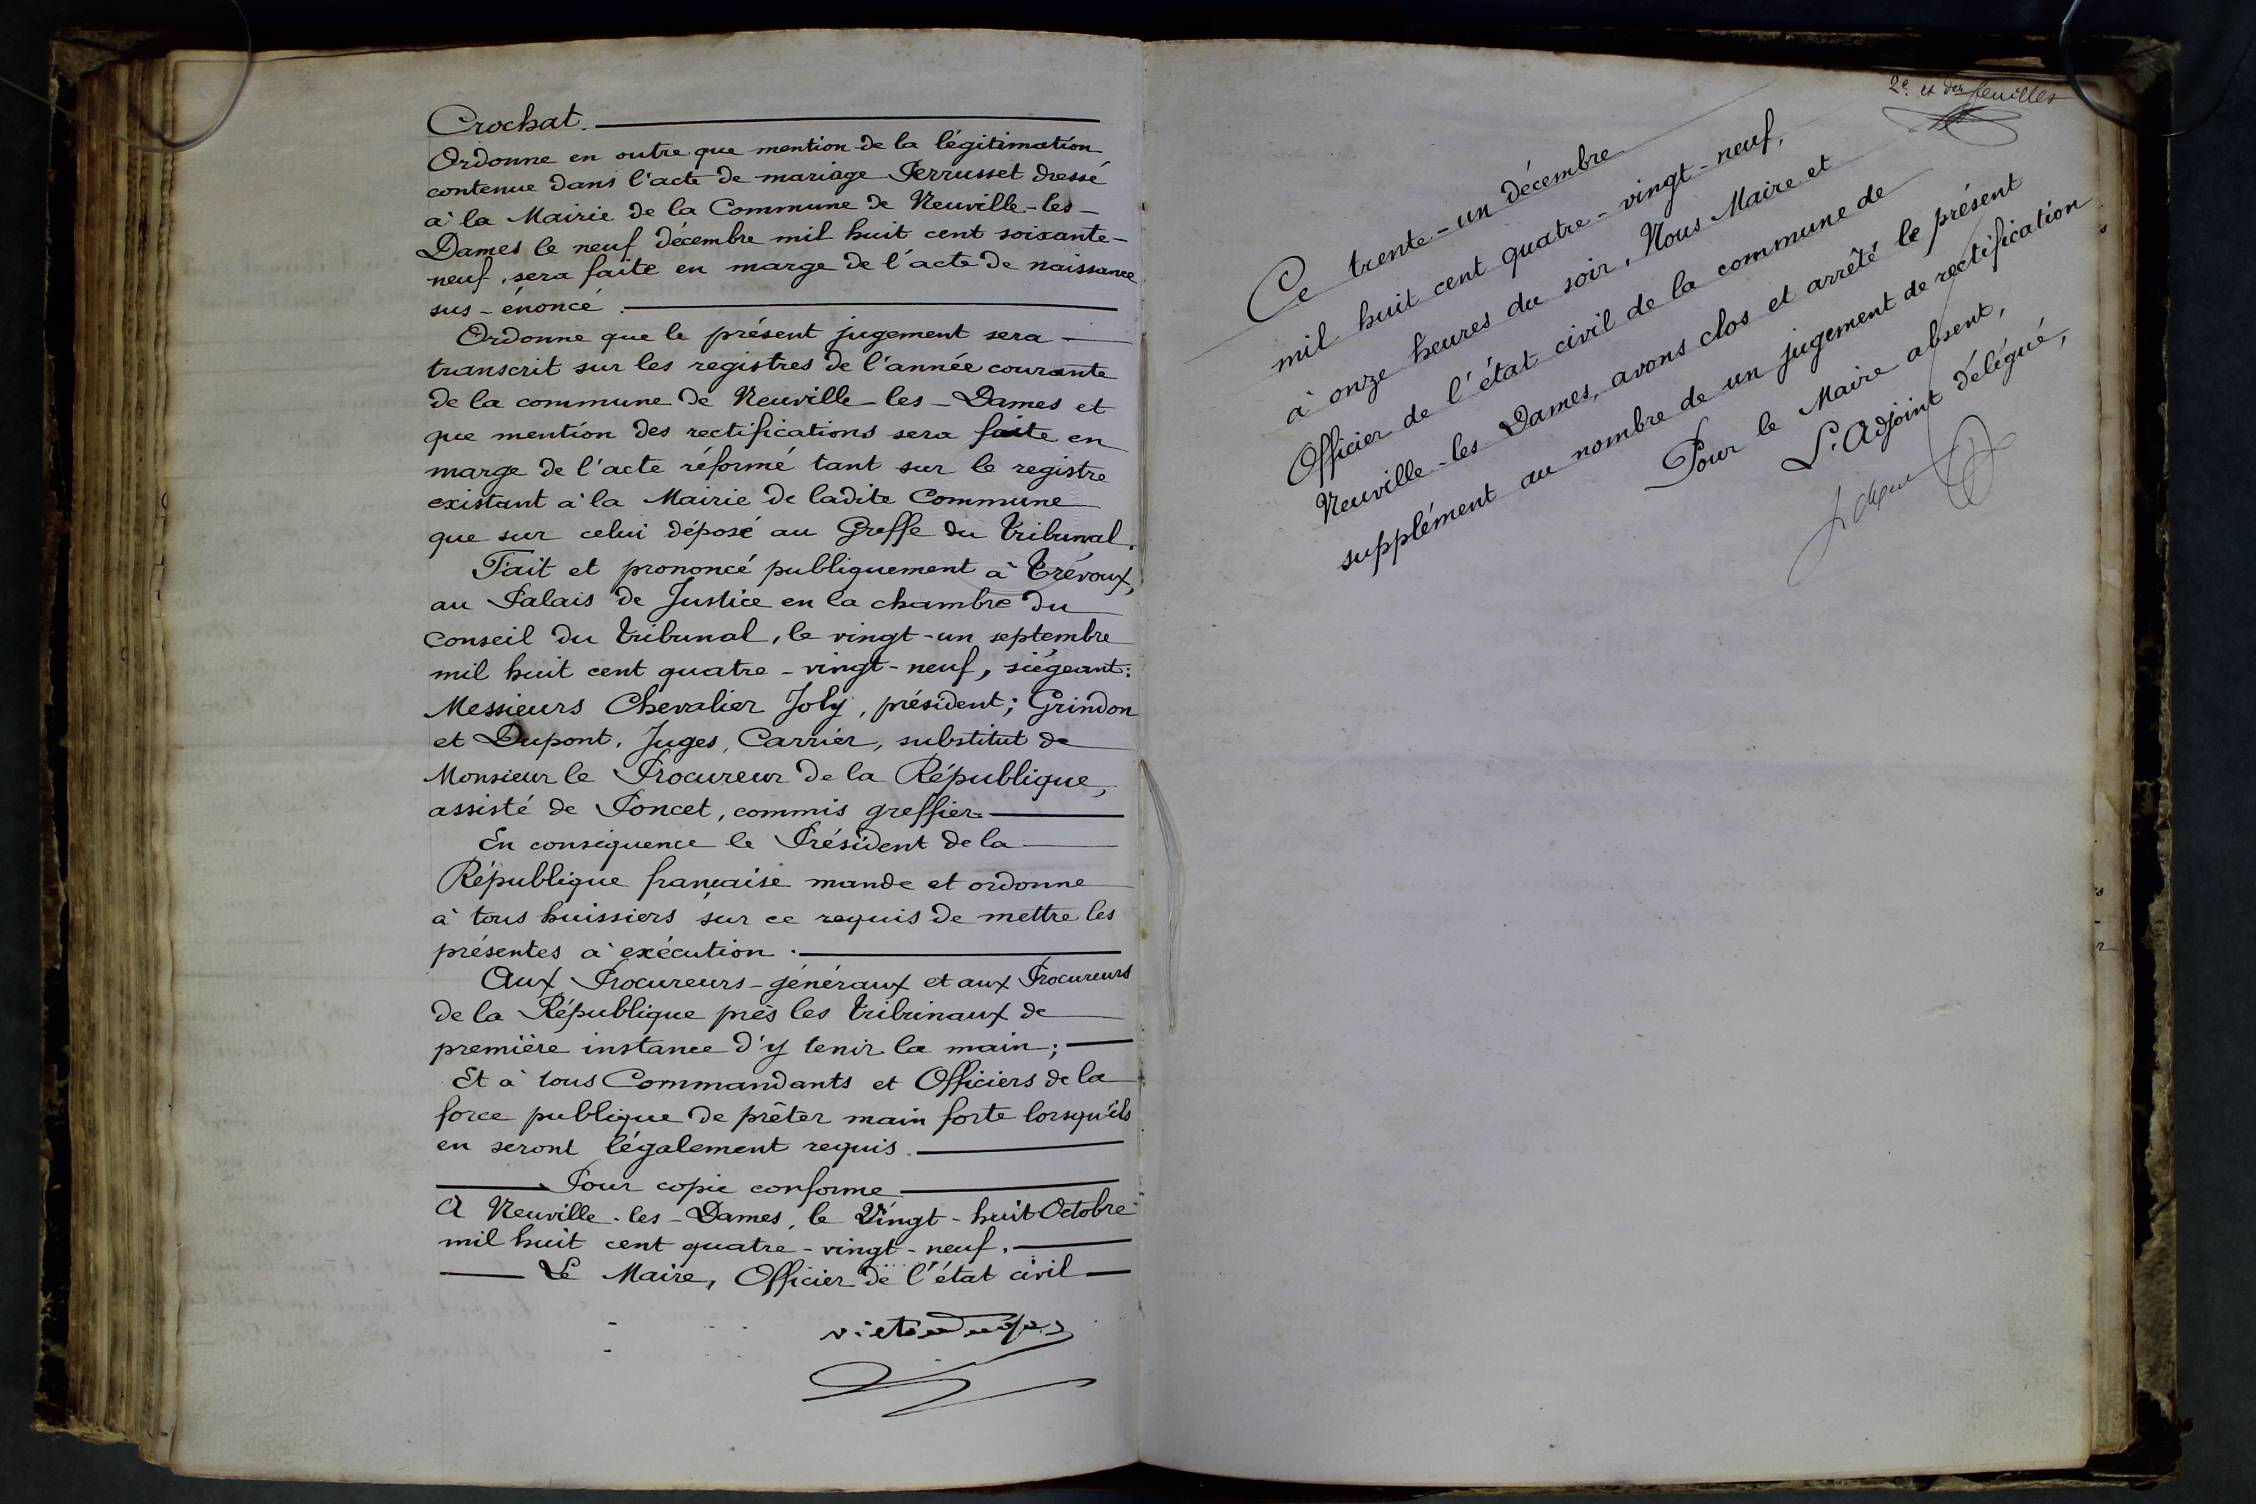 Crochat.
Ordonne en outre que mention de la légitimation
contenue dans l'acte de mariage Perrusset dressé
à la Mairie de la Commune de Neuville-les-
Dames le neuf décembre mil huit cent soixante-
neuf, sera faite en marge de l'acte de naissance
sus-énoncé.
Ordonne que le présent jugement sera
transcrit sur les registres de l'année courante
de la commune de Neuville-les-Dames et
que mention des rectifications sera faite en
marge de l'acte réformé tant sur le registre
existant à la Mairie de ladite Commune
que sur celui déposé au Greffe du Tribunal.
Fait et prononcé publiquement à Trévoux,
au Palais de Justice en la chambre du
Conseil du Tribunal, le vingt-un septembre
mil huit cent quatre-vingt-neuf, siégeant:
Messieurs Chevalier Joly, président; Grindon
et Dupont, Juges, Carrier, substitut de
Monsieur le Procureur de la République,
assisté de Poncet, commis greffier.
En conséquence le Président de la
République française mande et ordonne
à tous huissiers sur ce requis de mettre les
présentes à exécution.
Aux Procureurs-généraux et aux Procureurs
de la République près les tribunaux de
première instance d'y tenir la main;
Et à tous Commandants et Officiers de la
force publique de prêter main forte lorsqu'ils
en seront légalement requis.
Pour copie conforme
A Neuville-les-Dames, le Vingt-huit Octobre
mil huit cent quatre-vingt-neuf.
Le Maire, Officier de l'état civil
2e et der feuilles
Ce trente-un décembre
mil huit cent quatre-vingt-neuf,
à onze heures du soir, Nous Maire et
Officier de l'état civil de la commune de
Neuville-les Dames, avons clos et arrêté le présent
supplément au nombre de un jugement de rectification
Pour le Maire absent,
L'Adjoint délégué,